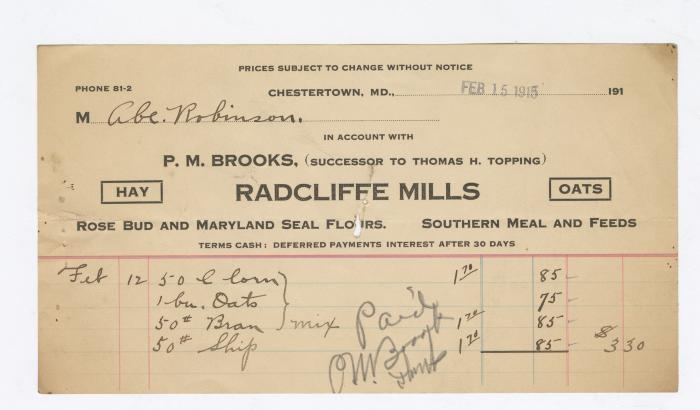 PRICES SUBJECT TO CHANGE WITHOUT NOTICE
PHONE 81-2
CHESTERTOWN, MD., FEB 15 1915 191
M Abe. Robinson.
IN ACCOUNT WITH
P. M. BROOKS, (SUCCESSOR TO THOMAS H. TOPPING)
HAY RADCLIFFE MILLS OATS
ROSE BUD AND MARYLAND SEAL FLOURS. SOUTHERN MEAL AND FEEDS
TERMS CASH: DEFERRED PAYMENTS INTEREST AFTER 30 DAYS
Feb 12 50 C Corn 1 70 85 -
1 bu. Oats 75 -
50# Bran mix 1 70 85 -
50# Ship 1 70 85 - $ 3 30
Paid
P.M. Brooks